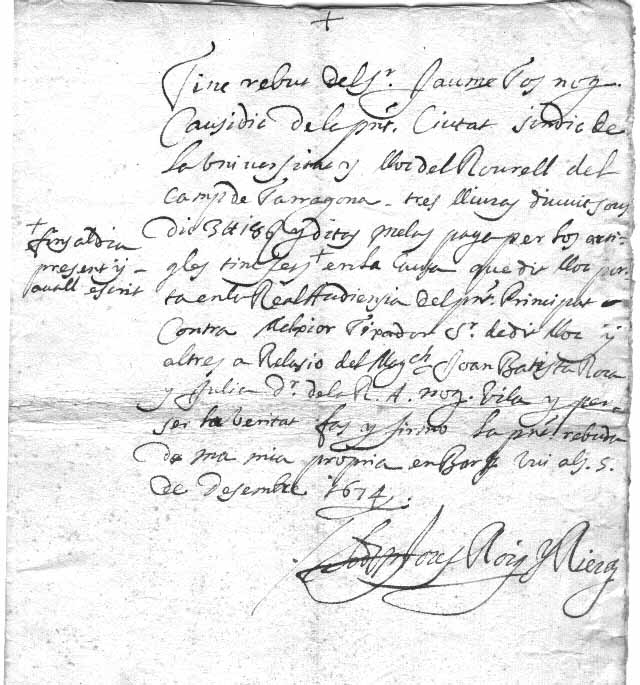 +
Tinc rebut del Sr. Jaume Tos noy.
Causidic de la pnt. Ciutat sindic de
la Universitat y lloc del Rourell del
Camp de Tarragona tres lliuras divuit sous
dic 3 ll 18 y ditas me las paga per los arti-
gles tinc fets + en la causa que dit lloc por-
ta en la Real Audiensia del pnt. Principat
Contra Melchior Sr. de dit lloc y
altres a Relasio del Magch. Joan Batista Roca
y Julia Dr. de la R. A. noy. Vila y per
ser la veritat fas y firmo la pnt. rebuda
de ma mia propria en Bar.
de Desembre 1674.
+
fins al dia
present y
avall escrit
Roig Y Riera